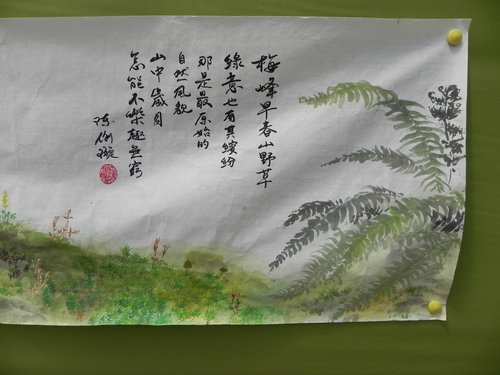 梅峰早春山野草
綠意也有其繽紛
那是最原始的
自然風貌
山中歲月
怎能不樂趣無窮
陳俐璇